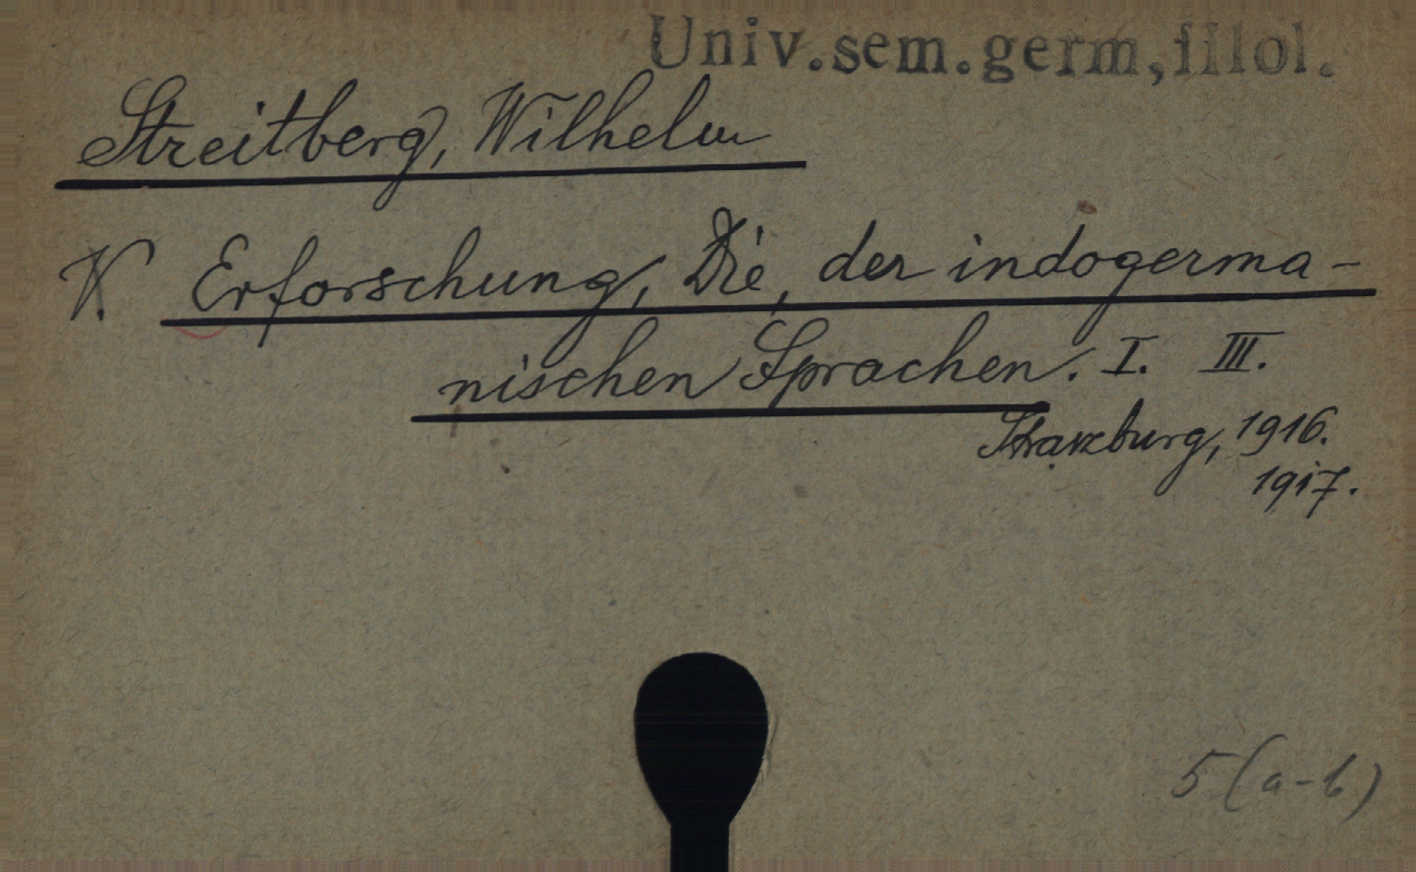 Univ.sem.germ,filol.
Streitberg, Wilhelm
V. Erforschung, Die, der indogerma-
nischen Sprachen. I. III.
Straszburg, 1916.
1917.
5(a-b)